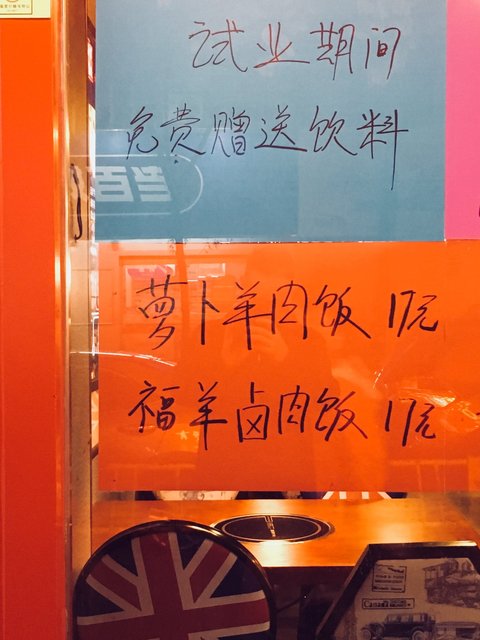 试业期间
免费赠送饮料
萝卜羊肉饭 17元
福羊卤肉饭 17元
Canada